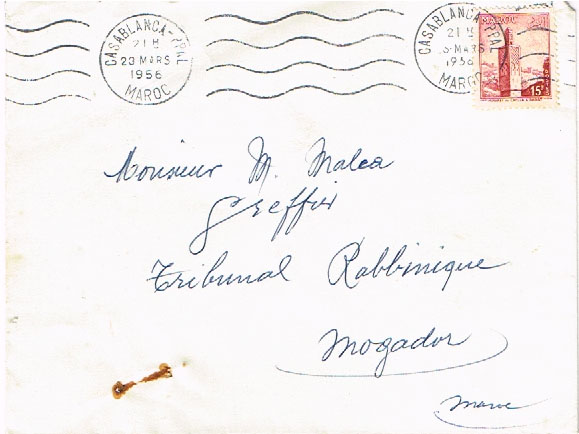 CASABLANCA-PPAL
21 H
23 MARS
1956
MAROC
CASABLANCA-PPAL
21 H
MARS
1956
MAROC
MAROC
15F
Monsieur M. Malca
Greffier
Tribunal Rabbinique
Mogador
Maroc